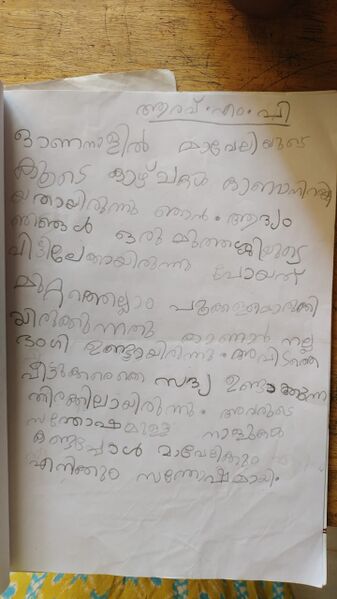 ആരവ്. എം. ഷി
ഓണനാളിൽ മാവേലിയുടെ
കൂടെ കാഴ്ചകൾ കാണാനിറങ്ങി
യതായിരുന്നു ഞാൻ. ആദ്യം
ഞങ്ങൾ ഒരു മുത്തശ്ശിയുടെ
വീട്ടിലേക്കായിരുന്നു പോയത്
മുറ്റത്തെല്ലാം പൂക്കളമൊരുക്കി
യിരിക്കുന്നതു കാണാൻ നല്ല
ഭംഗി ഉണ്ടായിരുന്നു. അവിടത്തെ
വീട്ടുക്കാരൊക്കെ സദ്യ ഉണ്ടാക്കുന്ന
തിരക്കിലായിരുന്നു. അവരുടെ
സന്തോഷമുള്ള
കണ്ടപ്പോൾ മാവേലിക്കും
എനിക്കും സന്തോഷമായി.